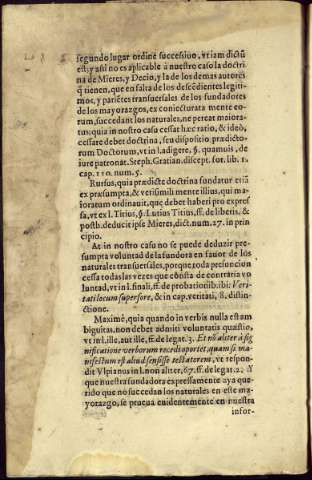 segundo lugar ordine successiuo, vt iam dictũ
est; y assi no es aplicable à nuestro caso la doctri
na de Mieres, y Decio, y la de los demas autores
q̃ tienen, que en falta de los descẽdientes legiti-
mos, y pariẽtes transuersales de los fundadores
de los mayorazgos, ex coniecturata mente eo-
rum, succedant los naturales, ne pereat maiora-
tus: quia in nostro casu cessat hæc ratio, & ideò,
cessare debet doctrina, seu dispositio prædicto-
rum Doctorum, vt in l. adigere. §. quamuis, de
iure patronat. Steph. Gratian. discept. for. lib. 1.
cap. 110. num. 5.
Rursus, quia prædicte doctrina fundatur etiã
ex præsumpta, & verisimili mente illius, qui ma-
ioratum ordinauit, que debet haberi pro expres
sa, vt ex l. Titius, §. Lutius Titius, ff. de liberis, &
posth. deducit ipse Mieres, dict. num. 27. in prin
cipio.
At in nostro caso no se puede deduzir pre-
sumpta voluntad de la fundora en fauor de los
naturales transuersales, porque toda presuncion
cessa todas las vezes que cõsta de contraria vo
luntad, vt in l. finali, ff. de probation lib. ibi: Veri-
tati locum superfore, & in cap. veritati, 8. distin-
ctione.
Maximè, quia quando in verbis nulla est am
biguitas, non debet admiti voluntatis quæstio,
vt in l. ille, aut ille, ff. de legat. 3. Et nõ aliter à sig
nificatione verborum recedi oportet, quam si ma-
nifestum est aliud sensisse testatorem, vt respon-
dit Vlpianus in l. non aliter, 67. ff. de legat. 2. Y
que nuestra fundadora expressamente aya que-
rido que no succedan los naturales en este ma
yorazgo, se prueua euidentemente en nuestra
infor-